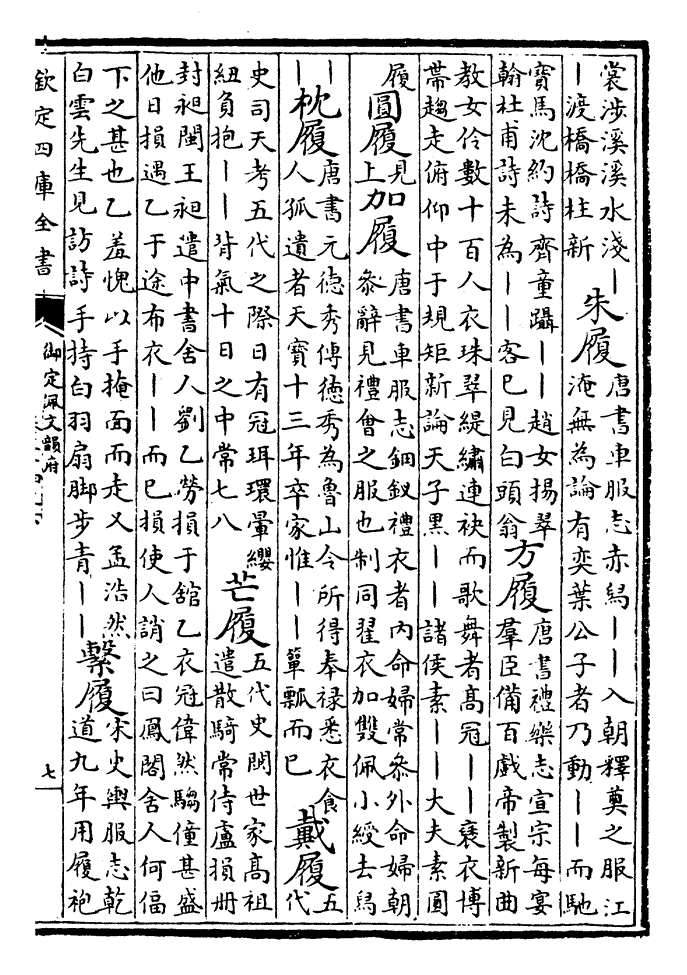 裳涉溪溪水淺丨
丨渡橋橋柱新
朱履
唐書車服志赤舄丨丨入朝釋奠之服江
淹無為論有奕葉公子者乃動丨丨而馳
寶馬沈約詩齊童躡丨丨趙女揚翠
翰杜甫詩未為丨丨客已見白頭翁
方履
唐書禮樂志宣宗每宴
羣臣備百戲帝製新曲
教女伶數十百人衣珠翠緹繡連袂而歌舞者高冠丨丨褒衣博
帶趨走俯仰中于規矩新論天子黑丨丨諸侯素丨丨大夫素圓
履
圓履
見
上
加履
唐書車服志鈿釵禮衣者內命婦常參外命婦朝
參辭見禮會之服也制同翟衣加雙佩小綬去舄
丨
丨
枕履
唐書元德秀傳德秀為魯山令所得奉祿悉衣食
人孤遺者天寶十三年卒家惟丨丨簞瓢而已
戴履
五
代
史司天考五代之際日有冠珥環暈纓
紐負抱丨丨背氣十日之中常七八
芒履
五代史閩世家高祖
遣散騎常侍盧損冊
封昶閩王昶遣中書舍人劉乙勞損于館乙衣冠偉然騶僮甚盛
他日損遇乙于途布衣丨丨而已損使人誚之曰鳳閣舍人何偪
下之甚也乙羞愧以手掩面而走又孟浩然
白雲先生見訪詩手持白羽扇脚步青丨丨
繫履
宋史輿服志乾
道九年用履袍
欽定四庫全書
御定佩文韻府
七